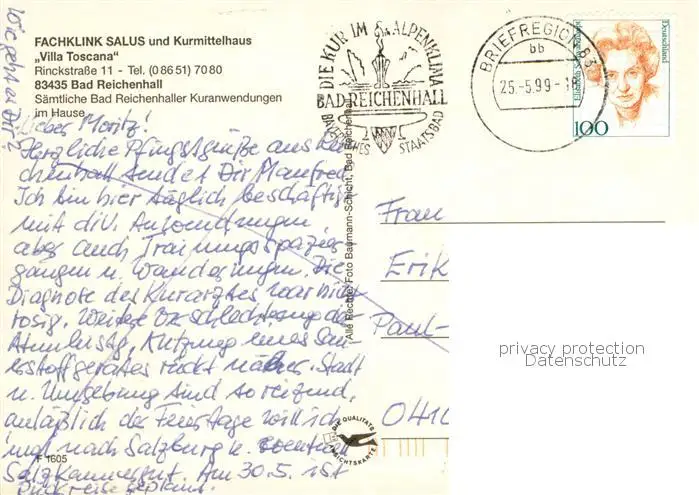 Wie geht es Dir?
FACHKLINK SALUS und Kurmittelhaus
„Villa Toscana"
Rinckstraße 11 - Tel. (0 86 51) 70 80
83435 Bad Reichenhall
Sämtliche Bad Reichenhaller Kuranwendungen
im Hause
Lieber Moritz!
Herzliche Pfingstgrüße aus Rei
chenhall sendet Dir Manfred.
Ich bin hier täglich beschäftigt
mit div. Anwendungen,
aber auch Trainingsspazier
gängen u. Wanderungen. Die
Diagnose des Kurarztes war nicht
rosig. Weitere Verschlechterung der
Atmung, Nutzung eines Sau
erstoffgerätes rückt näher. Stadt
u. Umgebung sind so reizend,
anläßlich der Feiertage will ich
mal nach Salzburg u. eventuell
Salzkammergut. Am 30.5. ist
Rückreise geplant.
F 1605
Alle Rechte: Foto Baumann-Schicht, Bad Reichenhall
DIE KUR IM ALPENKLIMA
BAD REICHENHALL
BAYERISCHES STAATSBAD
BRIEFREGION 83
bb
25.-5.99-18
Deutschland
100
Frau
Erik
Paul-
0410
DIE QUALITÄTS
ANSICHTSKARTE
privacy protection
Datenschutz